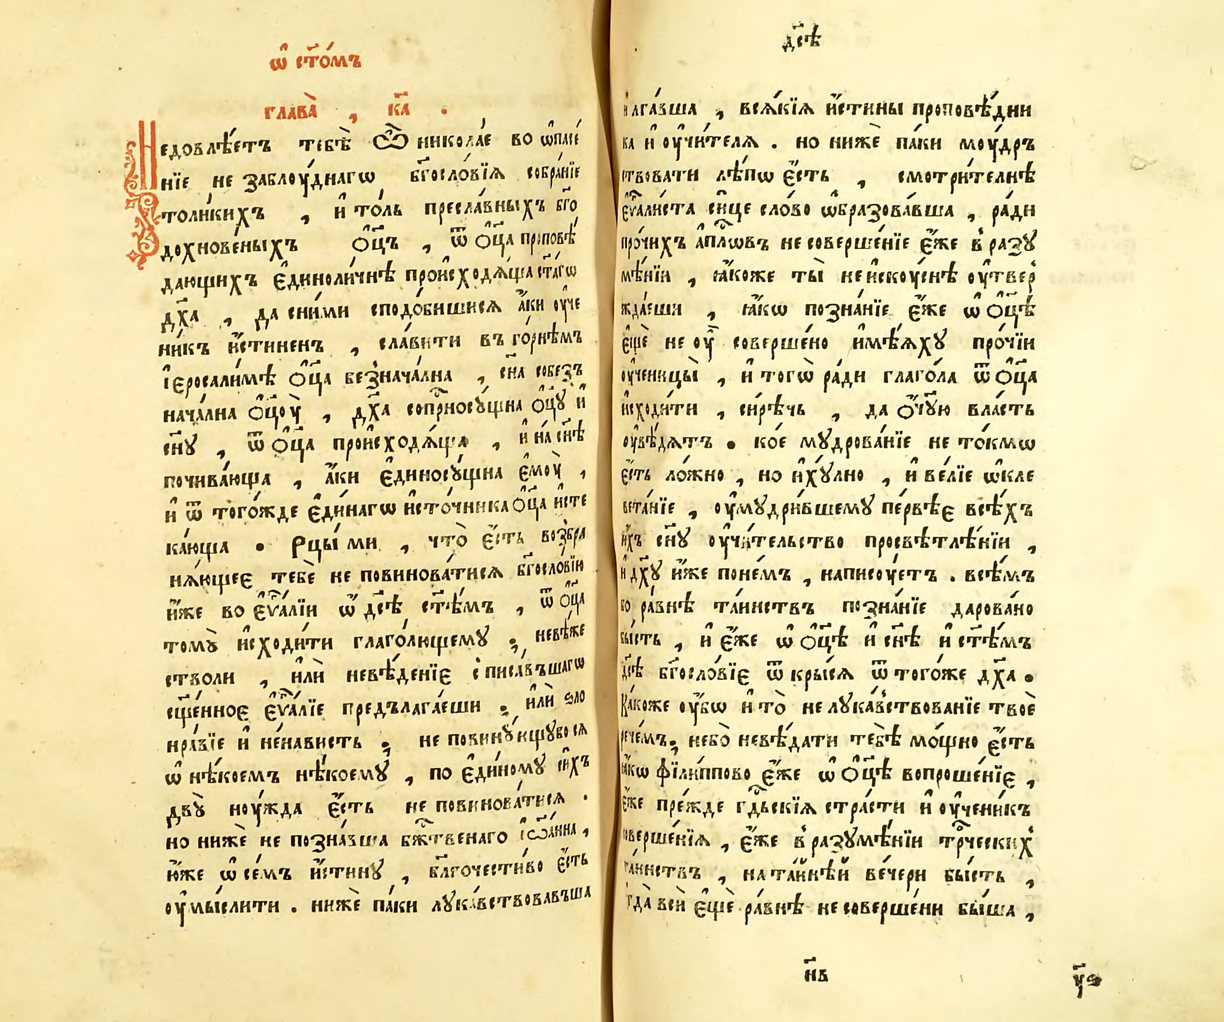 ѡ҆ ст҃о́мъ
глава̀ , к҃а .
Недовлѣ́етъ тебѣ̀ Ѽ николáе во ѡ҆пасе́
нїе не заблоу́днагѡ бг҃осло́вїѧ собра́нїе
толи́кихъ , и҆ то́ль пресла́вныхъ бг҃о
дохнове́ныхъ ѻ҆ц҃ъ , ѿ ѻ҆ц҃а̀ проповѣ́
дающихъ є҆диноли́чнѣ происходѧ́ща ст҃а́гѡ
дх҃а , да сни́ми сподо́бишисѧ а҆́ки оу҆че
ни́къ и҆́стиненъ , сла́вити въ го́рнѣмъ
і҆еросали́мѣ ѻ҆ц҃а̀ безнача́лна , сн҃а собезъ
нача́лна ѻ҆ц҃оу̀ , дх҃а сопрⷭ҇носу́щна ѻ҆ц҃ꙋ̀ и҆
сн҃ꙋ , ѿ ѻ҆ц҃а̀ происходѧ́ща , и҆ на сн҃ѣ
почива́юща , а҆́ки є҆диносꙋ́щна є҆моу̀ ,
и҆ ѿ того́жде є҆ди́нагѡ и҆сто́чника ѻ҆ц҃а и҆сте
ка́юща . Рцы́ ми , что̀ є҆́сть возбра
нѧ́ющеє тебѐ не повинова́тисѧ бг҃осло́вїи
и҆́же во є҆ѵⷢ҇а́лїи ѡ҆ дс҃ѣ ст҃ѣ́мъ , ѿ ѻ҆ц҃а
томꙋ̀ и҆сходи́ти глаго́лющемꙋ ; невѣ́же
стволи , и҆лѝ невѣ́денїє списа́въшагѡ
сщ҃е́нноє є҆ѵⷢ҇а́лїе предълага́еши ; и҆лѝ ѕло
нра́вїе и҆ не́нависть ; не повинꙋ́ющꙋбосѧ
ѡ҆ нѣ́коемъ нѣ́коемꙋ , по є҆ди́номꙋ си́хъ
двꙋ̀ ноу́жда є҆́сть не повинова́тисѧ .
но ниже́ не позна́вша бжⷭ҇твенаго і҆ѡа́нна ,
ю҆́же ѡ҆ се́мъ и҆́стинꙋ , бл҃гочести́во є҆́сть
оу҆мы́слити . нижѐ па́ки лꙋка́вствовавъша
и҆ лга́вша , всѧ́кїѧ и҆́стины проповѣ́дни
ка и҆ оу҆чи́телѧ . но нижѐ па́ки моу́дръ
ствовати лѣ́пѡ є҆́сть , смотри́телнѣ
є҆ѵⷢ҇али́ста си́це сло́во ѡ҆бразова́вша , ра́ди
про́чихъ а҆пⷭ҇лѡвъ несоверше́нїе є҆́же в ра́зꙋ
мѣ́нїи , ꙗ҆́коже ты̀ неискоу́снѣ оу҆твер
жда́еши , ꙗ҆́кѡ позна́нїе є҆́же ѡ҆ ѻ҆ц҃ѣ̀
є҆щѐ не оу҆̀ соверше́но и҆мѣ́ѧхꙋ про́чїи
оу҆ченицы̀ , и҆ тогѡ̀ ра́ди глаго́ла ѿ ѻ҆ц҃а
и҆сходи́ти , си́рѣчь , да ѻ҆́ч҃ꙋю вла́сть
оу҆вѣ́дѧтъ . ко́е мꙋдрова́нїе не то́кмѡ
є҆́сть ло́жно , но и҆ хꙋ́лно , и҆ ве́лїе ѡ҆кле
вета́нїе , оу҆мꙋдри́вшемꙋ пе́рвѣє всѣ́хъ
и҆́хъ сн҃ꙋ оу҆чи́тельство просвѣтлѣ́нїи ,
и҆ дх҃ꙋ и҆́же поне́мъ , написоу́етъ . всѣ́мъ
бо ра́внѣ та́инствъ позна́нїе дарова́но
бы́сть , и҆ є҆́же ѡ҆ ѻ҆ц҃ѣ̀ и҆ сн҃ѣ и҆ ст҃ѣ́мъ
дс҃ѣ бг҃осло́вїє ѿкры́сѧ ѿ того́же дх҃а .
Ка́коже оу҆́бѡ и҆ то̀ нелꙋка́вствованїе твоѐ
рече́мъ ; не́бо невѣ́дати тебѣ̀ мо́щно є҆́сть
ꙗ҆́кѡ фїли́ппово є҆́же ѡ҆ ѻ҆ц҃ѣ̀ вопроше́нїє ,
є҆́же пре́жде гдⷭ҇ьскїѧ стра́сти и҆ оу҆чени́къ
соверше́нїѧ , є҆́же в разꙋмѣ́нїи трⷪ҇ческихъ
та́инствъ , на та́йнѣй ве́чери бы́сть ,
тогда̀ всѝ є҆щѐ ра́внѣ не соверше́ни бы́ша ,
дс҃ѣ
н҃в